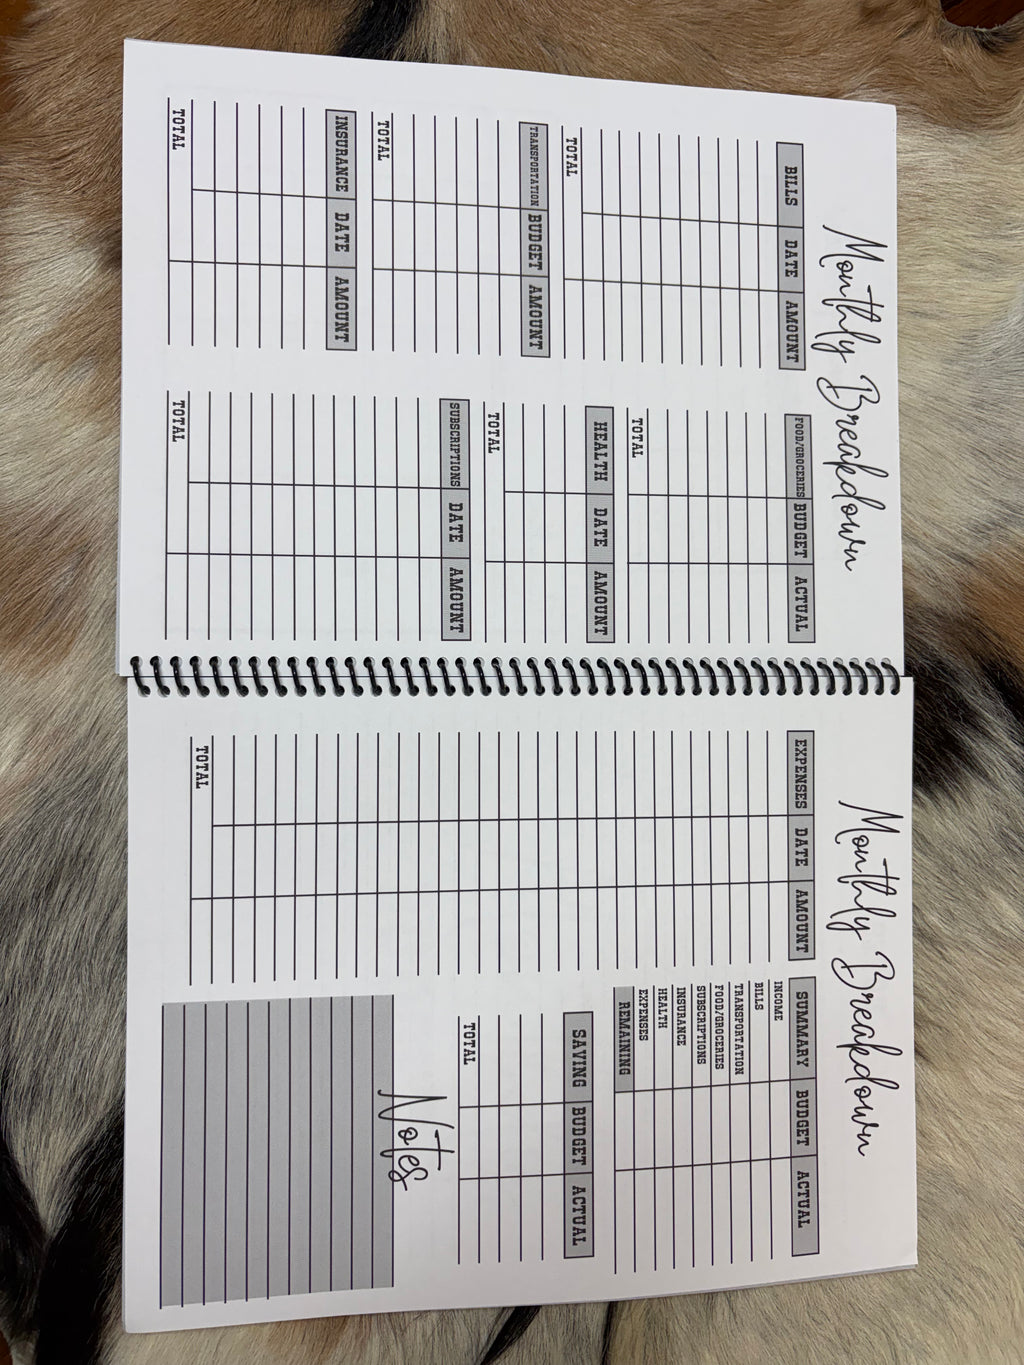 Monthly Breakdown
BILLS DATE AMOUNT
TOTAL
TRANSPORTATION BUDGET AMOUNT
TOTAL
INSURANCE DATE AMOUNT
TOTAL
FOOD/GROCERIES BUDGET ACTUAL
TOTAL
HEALTH DATE AMOUNT
TOTAL
SUBSCRIPTIONS DATE AMOUNT
TOTAL
Monthly Breakdown
EXPENSES DATE AMOUNT
TOTAL
SUMMARY BUDGET ACTUAL
INCOME
BILLS
TRANSPORTATION
FOOD/GROCERIES
SUBSCRIPTIONS
INSURANCE
HEALTH
EXPENSES
REMAINING
SAVING BUDGET ACTUAL
TOTAL
Notes